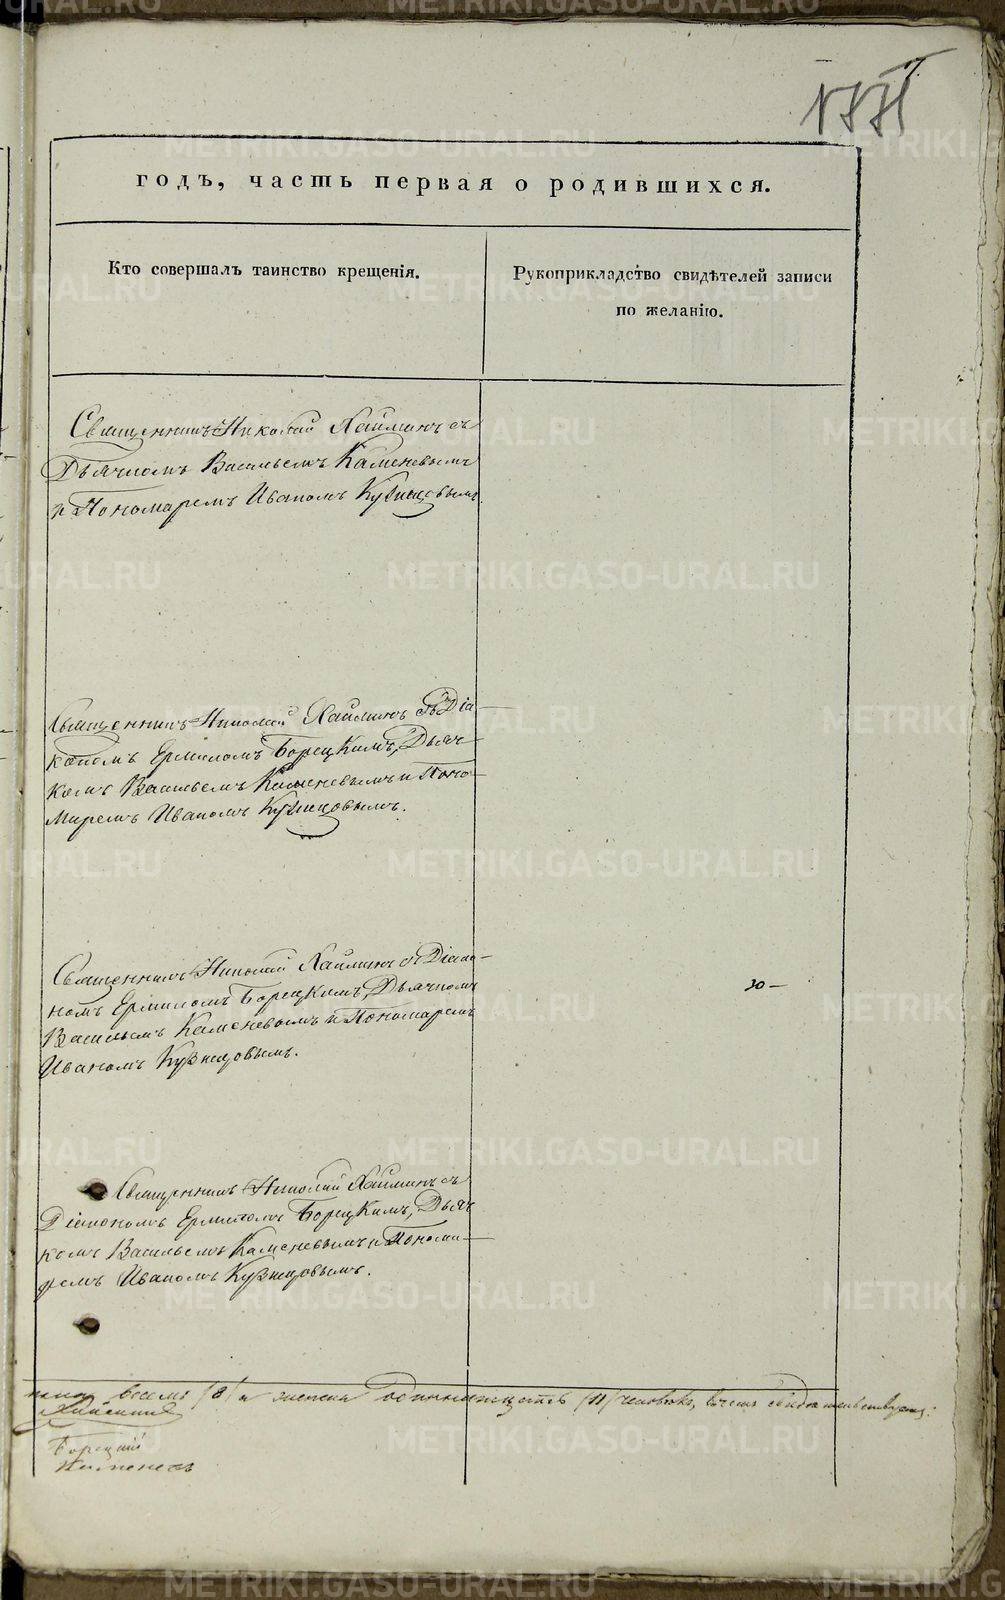 годъ, часть первая о родившихся.
Кто совершалъ таинство крещенія.
Рукоприкладство свидѣтелей записи
по желанію.
Священникъ Николай съ
Дьячкомъ Васильемъ Каменевымъ
и Пономаремъ Иваномъ Кузнецовымъ.
Священникъ Николай съ Діа
кономъ Ермиломъ Борецкимъ, Дьяч
комъ Васильемъ Каменевымъ и Поно-
маремъ Иваномъ Кузнецовымъ.
Священникъ Николай съ Діако-
номъ Ермиломъ Борецкимъ, Дьячкомъ
Васильемъ Каменевымъ и Пономаремъ
Иваномъ Кузнецовымъ.
30-
Священникъ Николай съ
Діакономъ Ермиломъ Борецкимъ, Дьяч
комъ Васильемъ Каменевымъ и Понома-
ремъ Иваномъ Кузнецовымъ.
пола восемь /8/ и женска одиннатцать /11/ человѣкъ, въ чемъ свидѣтельствуемъ:
Борецкій
Каменевъ
METRIKI.GASO-URAL.RU